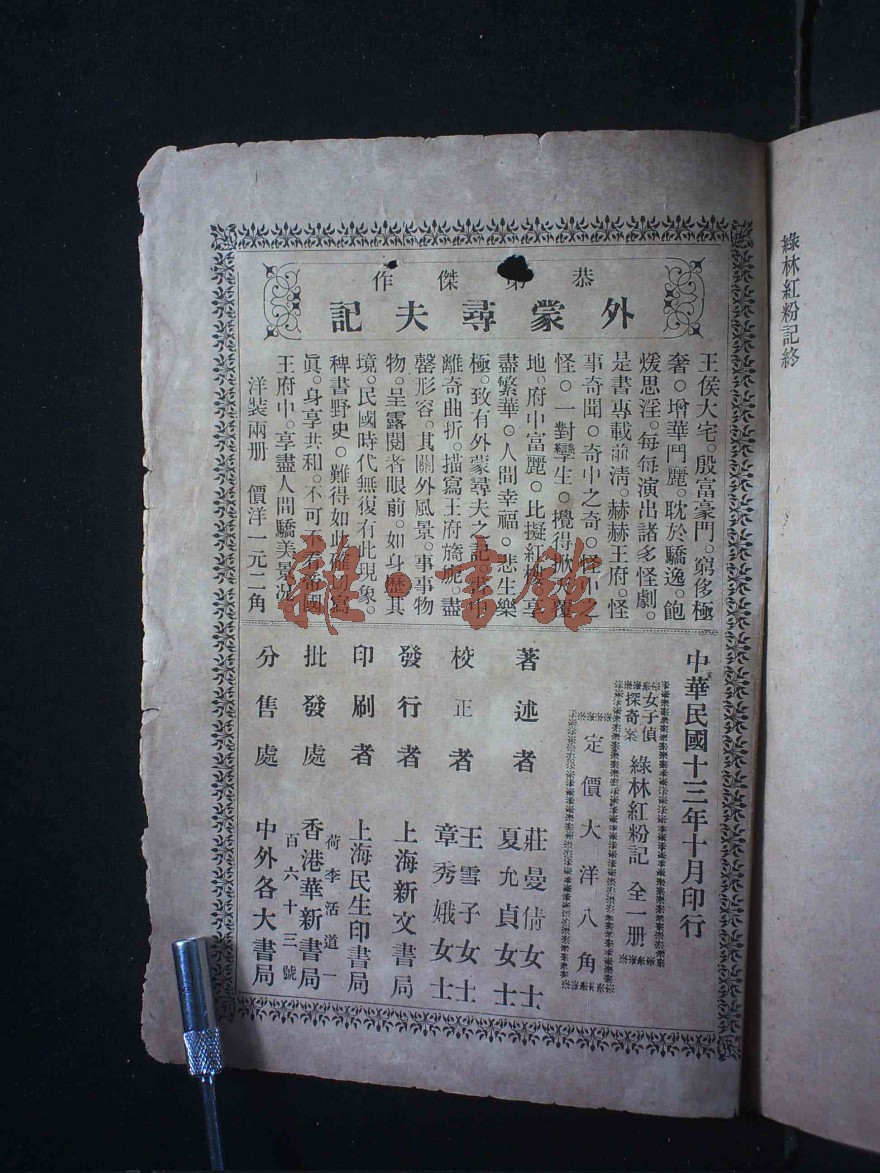 綠林紅粉記終
恭第傑作
外蒙尋夫記
王侯大宅。殷富豪門。窮侈極
奢。增華門麗。耽於驕逸。飽
煖思淫。每每演出諸多怪劇。
是書專載前清。赫赫王府。怪
事奇聞。奇中之奇。怪中之
怪。一對孿生。攪得掀天覆
地。府中富麗。比擬紅樓。享
盡繁華。人間幸福。悲生樂
極。致有外蒙尋夫之記。書中
離奇曲折。描寫王府旖旎。盡
罄形容。其關外風景。事事物
物。呈露閱者眼前。如身歷其
境。民國時代無復有此現象。
稗書野史。難得如此確切寫
眞。身享共和。不可不看帝國
王府中。享盡人間驕美景況
洋裝兩册 價洋一元二角
中華民國十三年十月印行
女子偵探奇案 綠林紅粉記 全一册
定價大洋八角
著述者 莊曼倩女士 夏允貞女士
校正者 王雪子女士 章秀娥女士
發行者 上海新文書局
印刷者 上海民生印書局
批發處 香港華新書局 荷李活道一百六十三號
分售處 中外各大書局
雜·書館